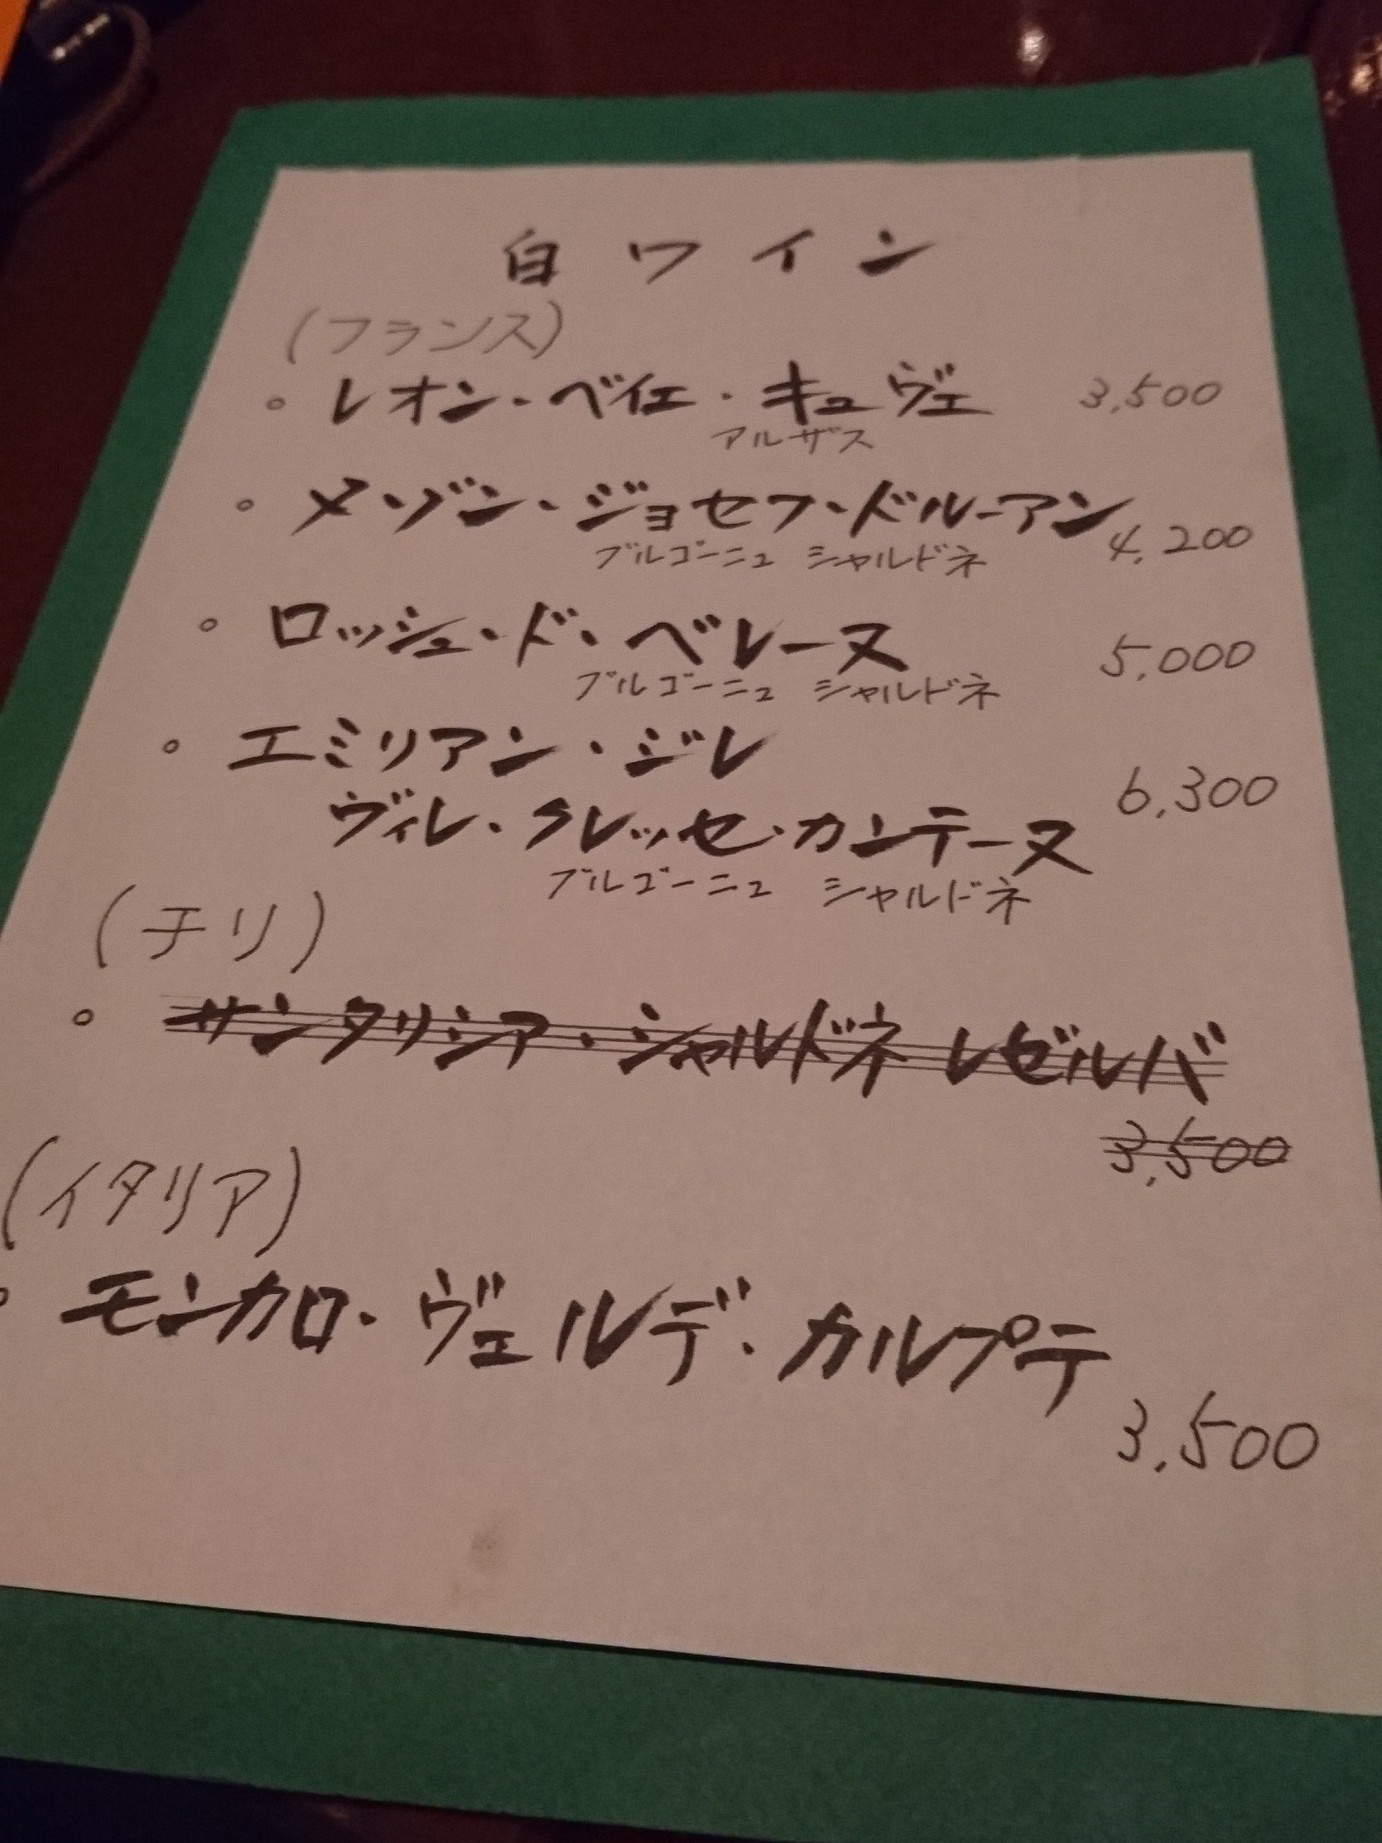 白ワイン
(フランス)
。レオン・ベイエ・キュヴェ 3,500
アルザス
。メゾン・ジョセフ・ドルーアン 4,200
ブルゴーニュ シャルドネ
。ロッシュ・ド・ベレーヌ 5,000
ブルゴーニュ シャルドネ
。エミリアン・ジレ
ヴィレ・クレッセ・カンテーヌ 6,300
ブルゴーニュ シャルドネ
(チリ)
。サンタリシア・シャルドネ レゼルバ
3,500
(イタリア)
。モンカロ・ヴェルデ・カルプテ
3,500